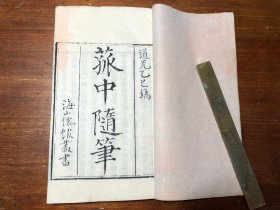 道光乙巳鐫
菰中隨筆
海山僊館叢書